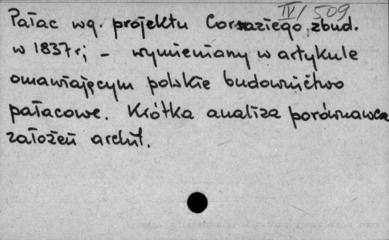 IV/509
Pałac wg. projektu Corazziego, zbud.
w 1837 r; – wymieniany w artykule
omawiającym polskie budownictwo
pałacowe. Krótka analiza porównawcza
założeń archit.